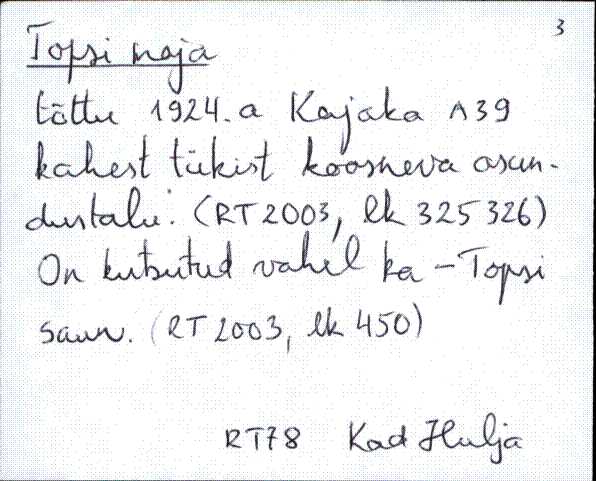 3
Topsi maja
tõttu 1924.a Kajaka A39
kahest tükist koosneva asun-
dustalu. (RT 2003, lk 325 326)
On kutsutud vahel ka - Topsi
saun. (RT 2003, lk 450)
RT78 Kad Hulja